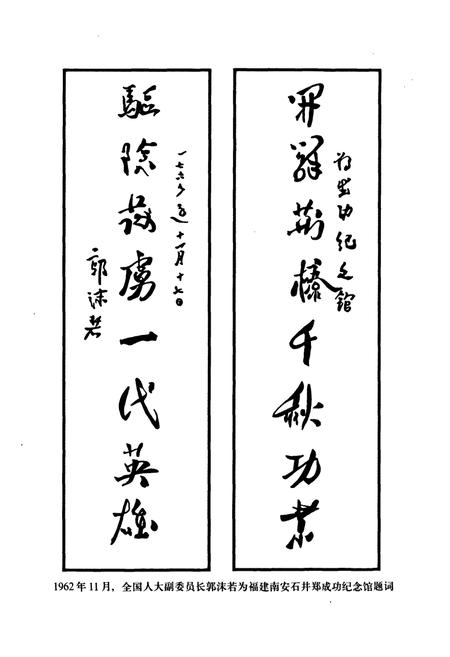 開辟荆榛千秋功業
為成功紀念館
驅除荷虜一代英雄
十一月十七日
郭沫若
1962年11月，全国人大副委员长郭沫若为福建南安石井郑成功纪念馆题词